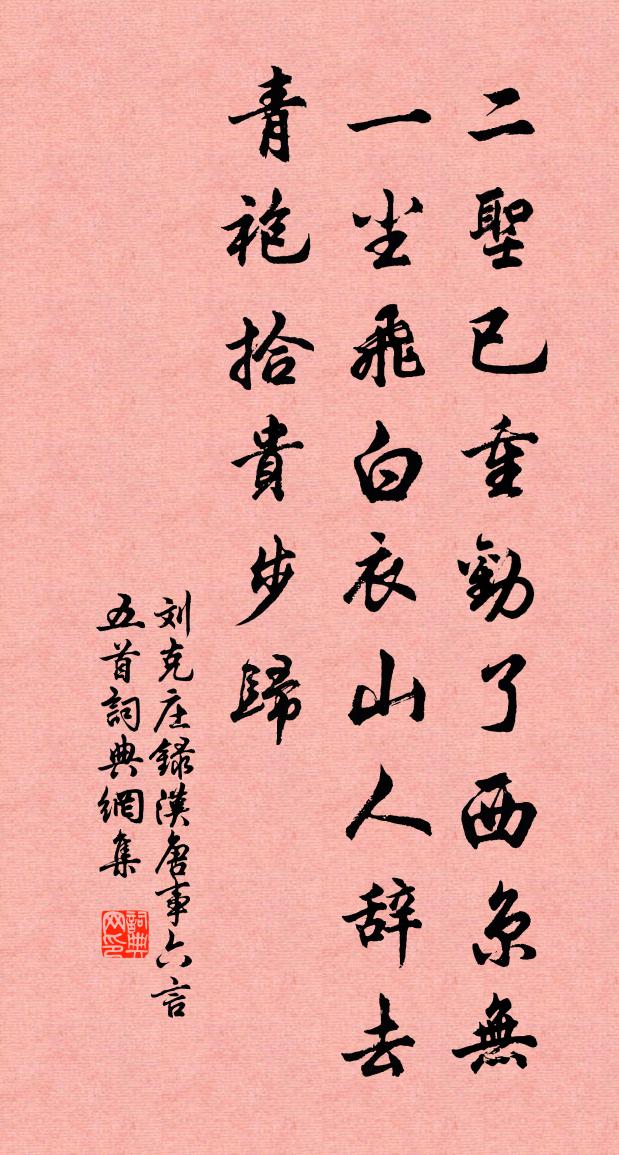 二聖已重勸了西京無
一尘飛白衣山人辞去
青袍拾貴步歸
刘克庄録漢唐事六言
五首詞典網集
詞典
网印